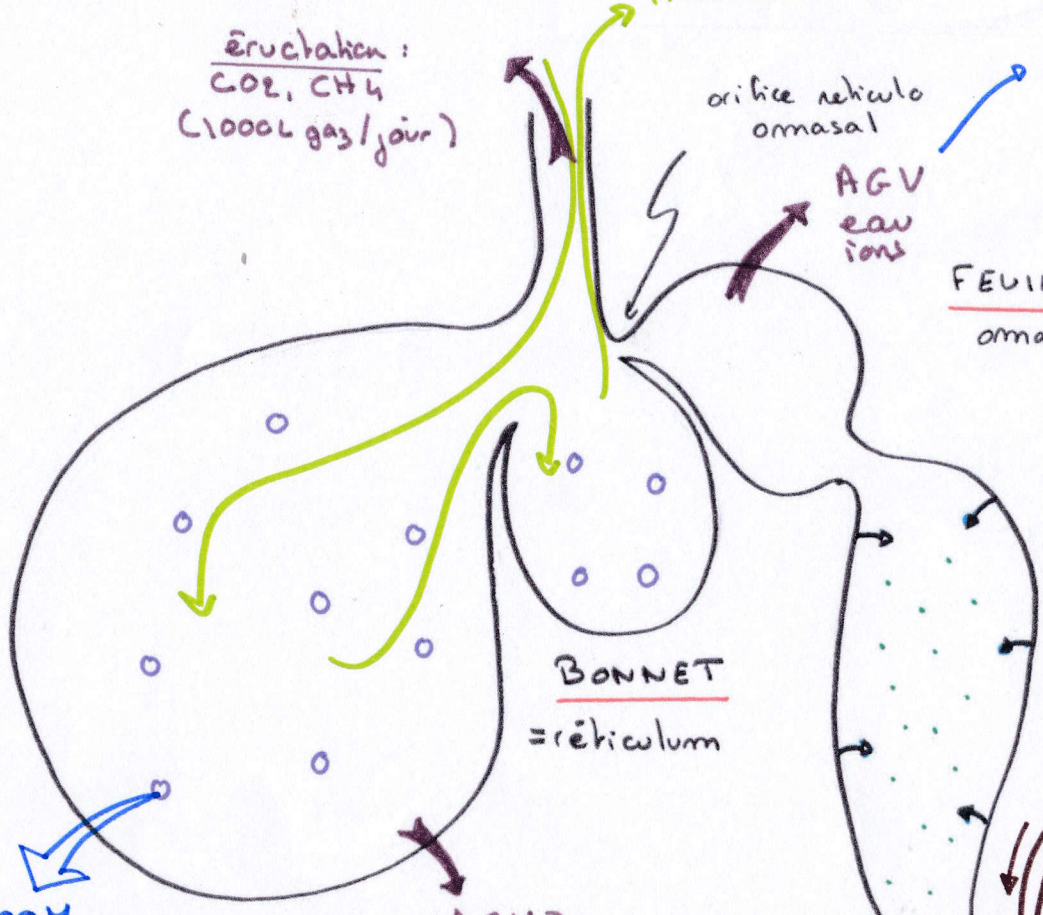 éructation :
CO2, CH4
(1000L gaz/jour)
orifice reticulo
omasal
AGV
eau
ions
FEUI
oma
BONNET
= réticulum